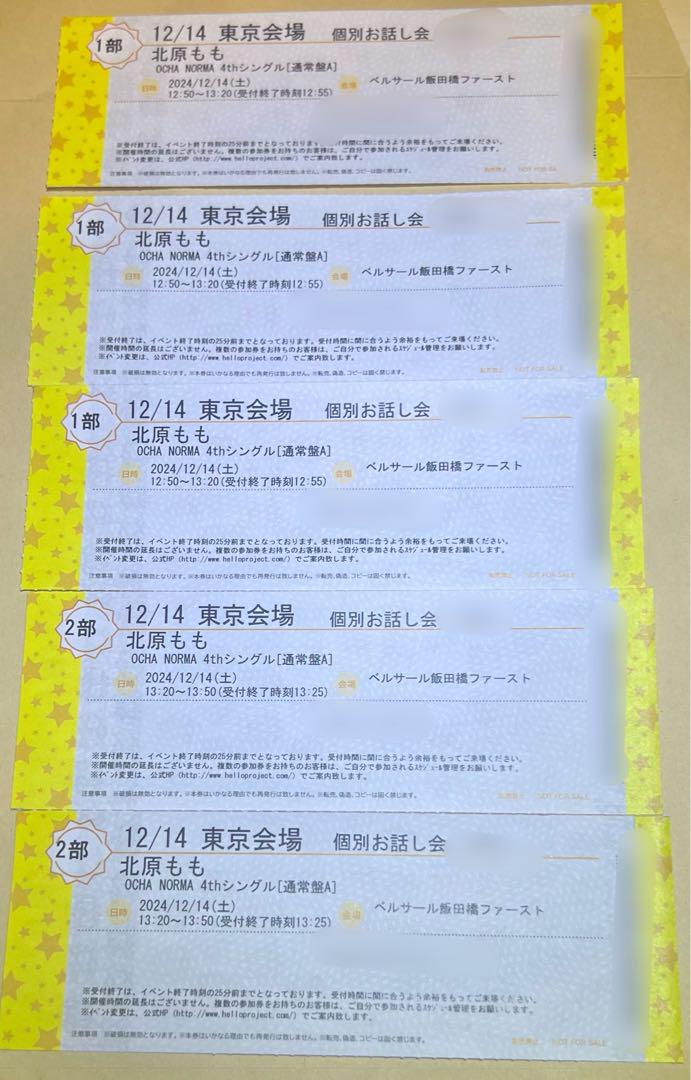 1部
12/14 東京会場 個別お話し会
北原もも
OCHA NORMA 4thシングル[通常盤A]
日時 2024/12/14(土) 会場 ベルサール飯田橋ファースト
12:50～13:20(受付終了時刻12:55)
※受付終了は、イベント終了時刻の25分前までとなっております。 付時間に間に合うよう余裕をもってご来場ください。
※開催時間の延長はございません。複数の参加券をお持ちのお客様は、ご自分で参加されるｽｹｼﾞｭｰﾙ管理をお願いします。
※ｲﾍﾞﾝﾄ変更は、公式HP (http://www.helloproject.com/) でご案内致します。
注意事項 ※破損は無効となります。※本券はいかなる理由でも再発行は致しません。※転売、偽造、コピーは固く禁じます。 転売禁止 NOT FOR SA
1部
12/14 東京会場 個別お話し会
北原もも
OCHA NORMA 4thシングル[通常盤A]
日時 2024/12/14(土) 会場 ベルサール飯田橋ファースト
12:50～13:20(受付終了時刻12:55)
※受付終了は、イベント終了時刻の25分前までとなっております。受付時間に間に合うよう余裕をもってご来場ください。
※開催時間の延長はございません。複数の参加券をお持ちのお客様は、ご自分で参加されるｽｹｼﾞｭｰﾙ管理をお願いします。
※ｲﾍﾞﾝﾄ変更は、公式HP (http://www.helloproject.com/) でご案内致します。
注意事項 ※破損は無効となります。※本券はいかなる理由でも再発行は致しません。※転売、偽造、コピーは固く禁じます。 転売禁止 NOT FOR SALE
1部
12/14 東京会場 個別お話し会
北原もも
OCHA NORMA 4thシングル[通常盤A]
日時 2024/12/14(土) 会場 ベルサール飯田橋ファースト
12:50～13:20(受付終了時刻12:55)
※受付終了は、イベント終了時刻の25分前までとなっております。受付時間に間に合うよう余裕をもってご来場ください。
※開催時間の延長はございません。複数の参加券をお持ちのお客様は、ご自分で参加されるｽｹｼﾞｭｰﾙ管理をお願いします。
※ｲﾍﾞﾝﾄ変更は、公式HP (http://www.helloproject.com/) でご案内致します。
注意事項 ※破損は無効となります。※本券はいかなる理由でも再発行は致しません。※転売、偽造、コピーは固く禁じます。 転売禁止 NOT FOR SALE
2部
12/14 東京会場 個別お話し会
北原もも
OCHA NORMA 4thシングル[通常盤A]
日時 2024/12/14(土) 会場 ベルサール飯田橋ファースト
13:20～13:50(受付終了時刻13:25)
※受付終了は、イベント終了時刻の25分前までとなっております。受付時間に間に合うよう余裕をもってご来場ください。
※開催時間の延長はございません。複数の参加券をお持ちのお客様は、ご自分で参加されるｽｹｼﾞｭｰﾙ管理をお願いします。
※ｲﾍﾞﾝﾄ変更は、公式HP (http://www.helloproject.com/) でご案内致します。
注意事項 ※破損は無効となります。※本券はいかなる理由でも再発行は致しません。※転売、偽造、コピーは固く禁じます。 転売禁止 NOT FOR SALE
2部
12/14 東京会場 個別お話し会
北原もも
OCHA NORMA 4thシングル[通常盤A]
日時 2024/12/14(土) 会場 ベルサール飯田橋ファースト
13:20～13:50(受付終了時刻13:25)
※受付終了は、イベント終了時刻の25分前までとなっております。受付時間に間に合うよう余裕をもってご来場ください。
※開催時間の延長はございません。複数の参加券をお持ちのお客様は、ご自分で参加されるｽｹｼﾞｭｰﾙ管理をお願いします。
※ｲﾍﾞﾝﾄ変更は、公式HP (http://www.helloproject.com/) でご案内致します。
注意事項 ※破損は無効となります。※本券はいかなる理由でも再発行は致しません。※転売、偽造、コピーは固く禁じます。 転売禁止 NOT FOR SALE